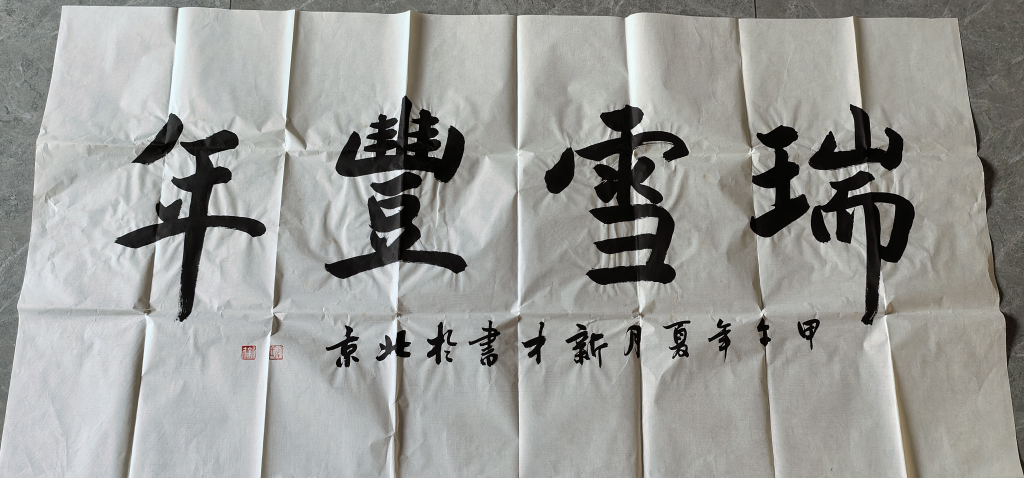 瑞雪豐年
甲午年夏月新才書於北京